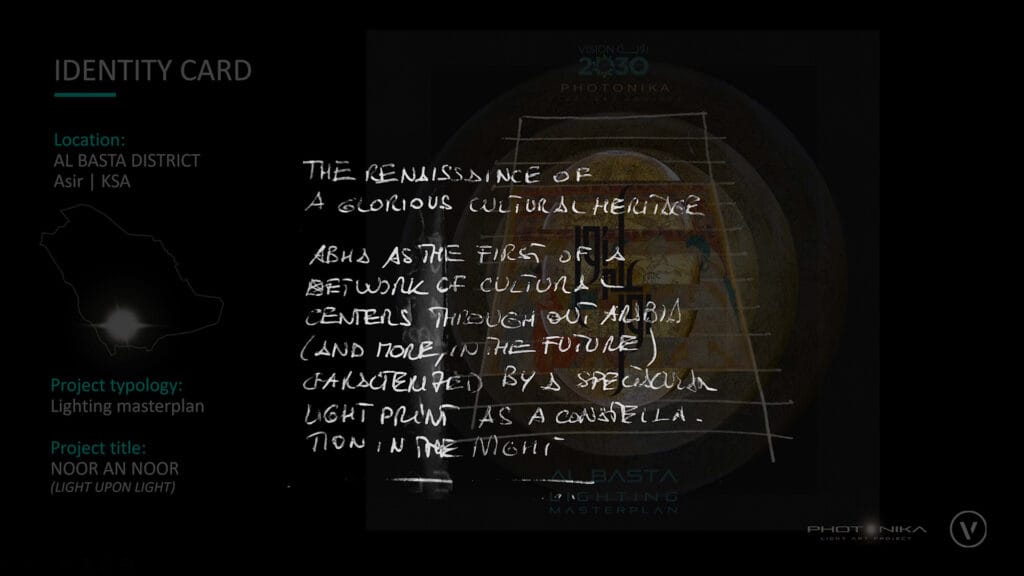 IDENTITY CARD
Location:
AL BASTA DISTRICT
Asir | KSA
Project typology:
Lighting masterplan
Project title:
NOOR AN NOOR
(LIGHT UPON LIGHT)
VISION رؤيــة
2030
PHOTONIKA
THE RENAISSAINCE OF
A GLORIOUS CULTURAL HERITAGE
ABHA AS THE FIRST OF A
NETWORK OF CULTURAL
CENTERS THROUGH OUT ARABIA
(AND MORE, IN THE FUTURE)
CHARACTERIZED BY A SPECTACULAR
LIGHT PRINT AS A CONSTELLA-
TION IN THE NIGHT
AL BASTA
LIGHTING
MASTERPLAN
PHOTONIKA
LIGHT ART PROJECT
V